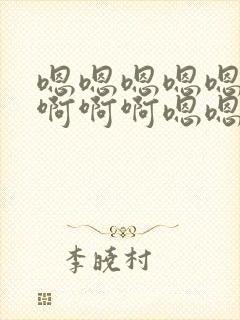 嗯嗯嗯嗯嗯
啊啊啊嗯嗯
李晓村